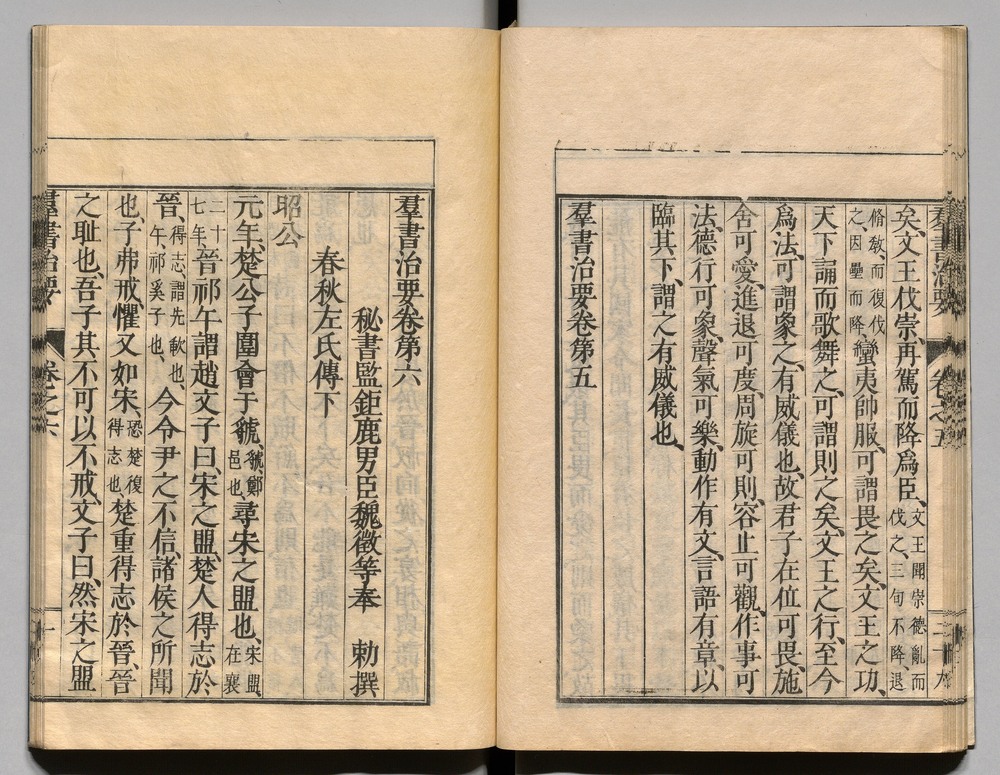 羣書治要 卷之五 二十九
矣、文王伐崇、再駕而降爲臣、文王聞崇德亂而伐之、三旬不降、退
脩敎、而復伐之、因壘而降、蠻夷帥服、可謂畏之矣、文王之功、
天下誦而歌舞之、可謂則之矣、文王之行、至今
爲法、可謂象之、有威儀也、故君子在位可畏、施
舍可愛、進退可度、周旋可則、容止可觀、作事可
法、德行可象、聲氣可樂、動作有文、言語有章、以
臨其下、謂之有威儀也、
羣書治要卷第五
羣書治要卷第六
秘書監鉅鹿男臣魏徵等奉 勅撰
春秋左氏傳下
昭公
元年、楚公子圍會于虢、虢、鄭邑也、尋宋之盟也、宋盟、在襄
二十七年、晉祁午謂趙文子曰、宋之盟、楚人得志於
晉、得志、謂先歃也、午、祁奚子也、今令尹之不信、諸侯之所聞
也、子弗戒、懼又如宋、恐楚復得志也、楚重得志於晉、晉
之耻也、吾子其不可以不戒、文子曰、然宋之盟
羣書治要 卷之六 一